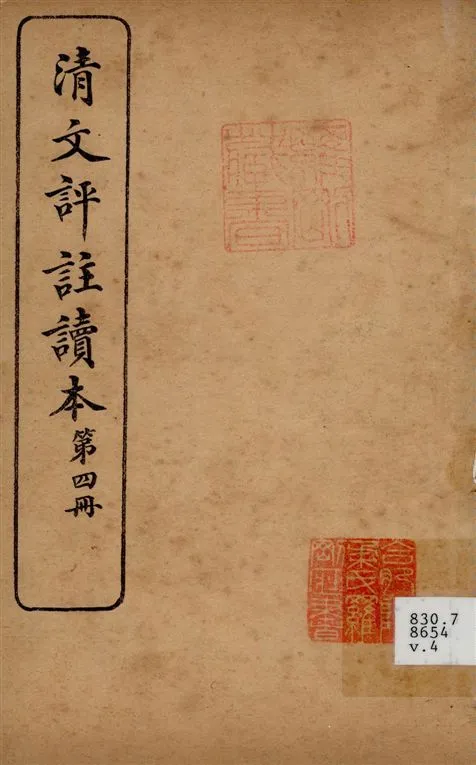 清文評註讀本第四冊
830.7
8654
v.4